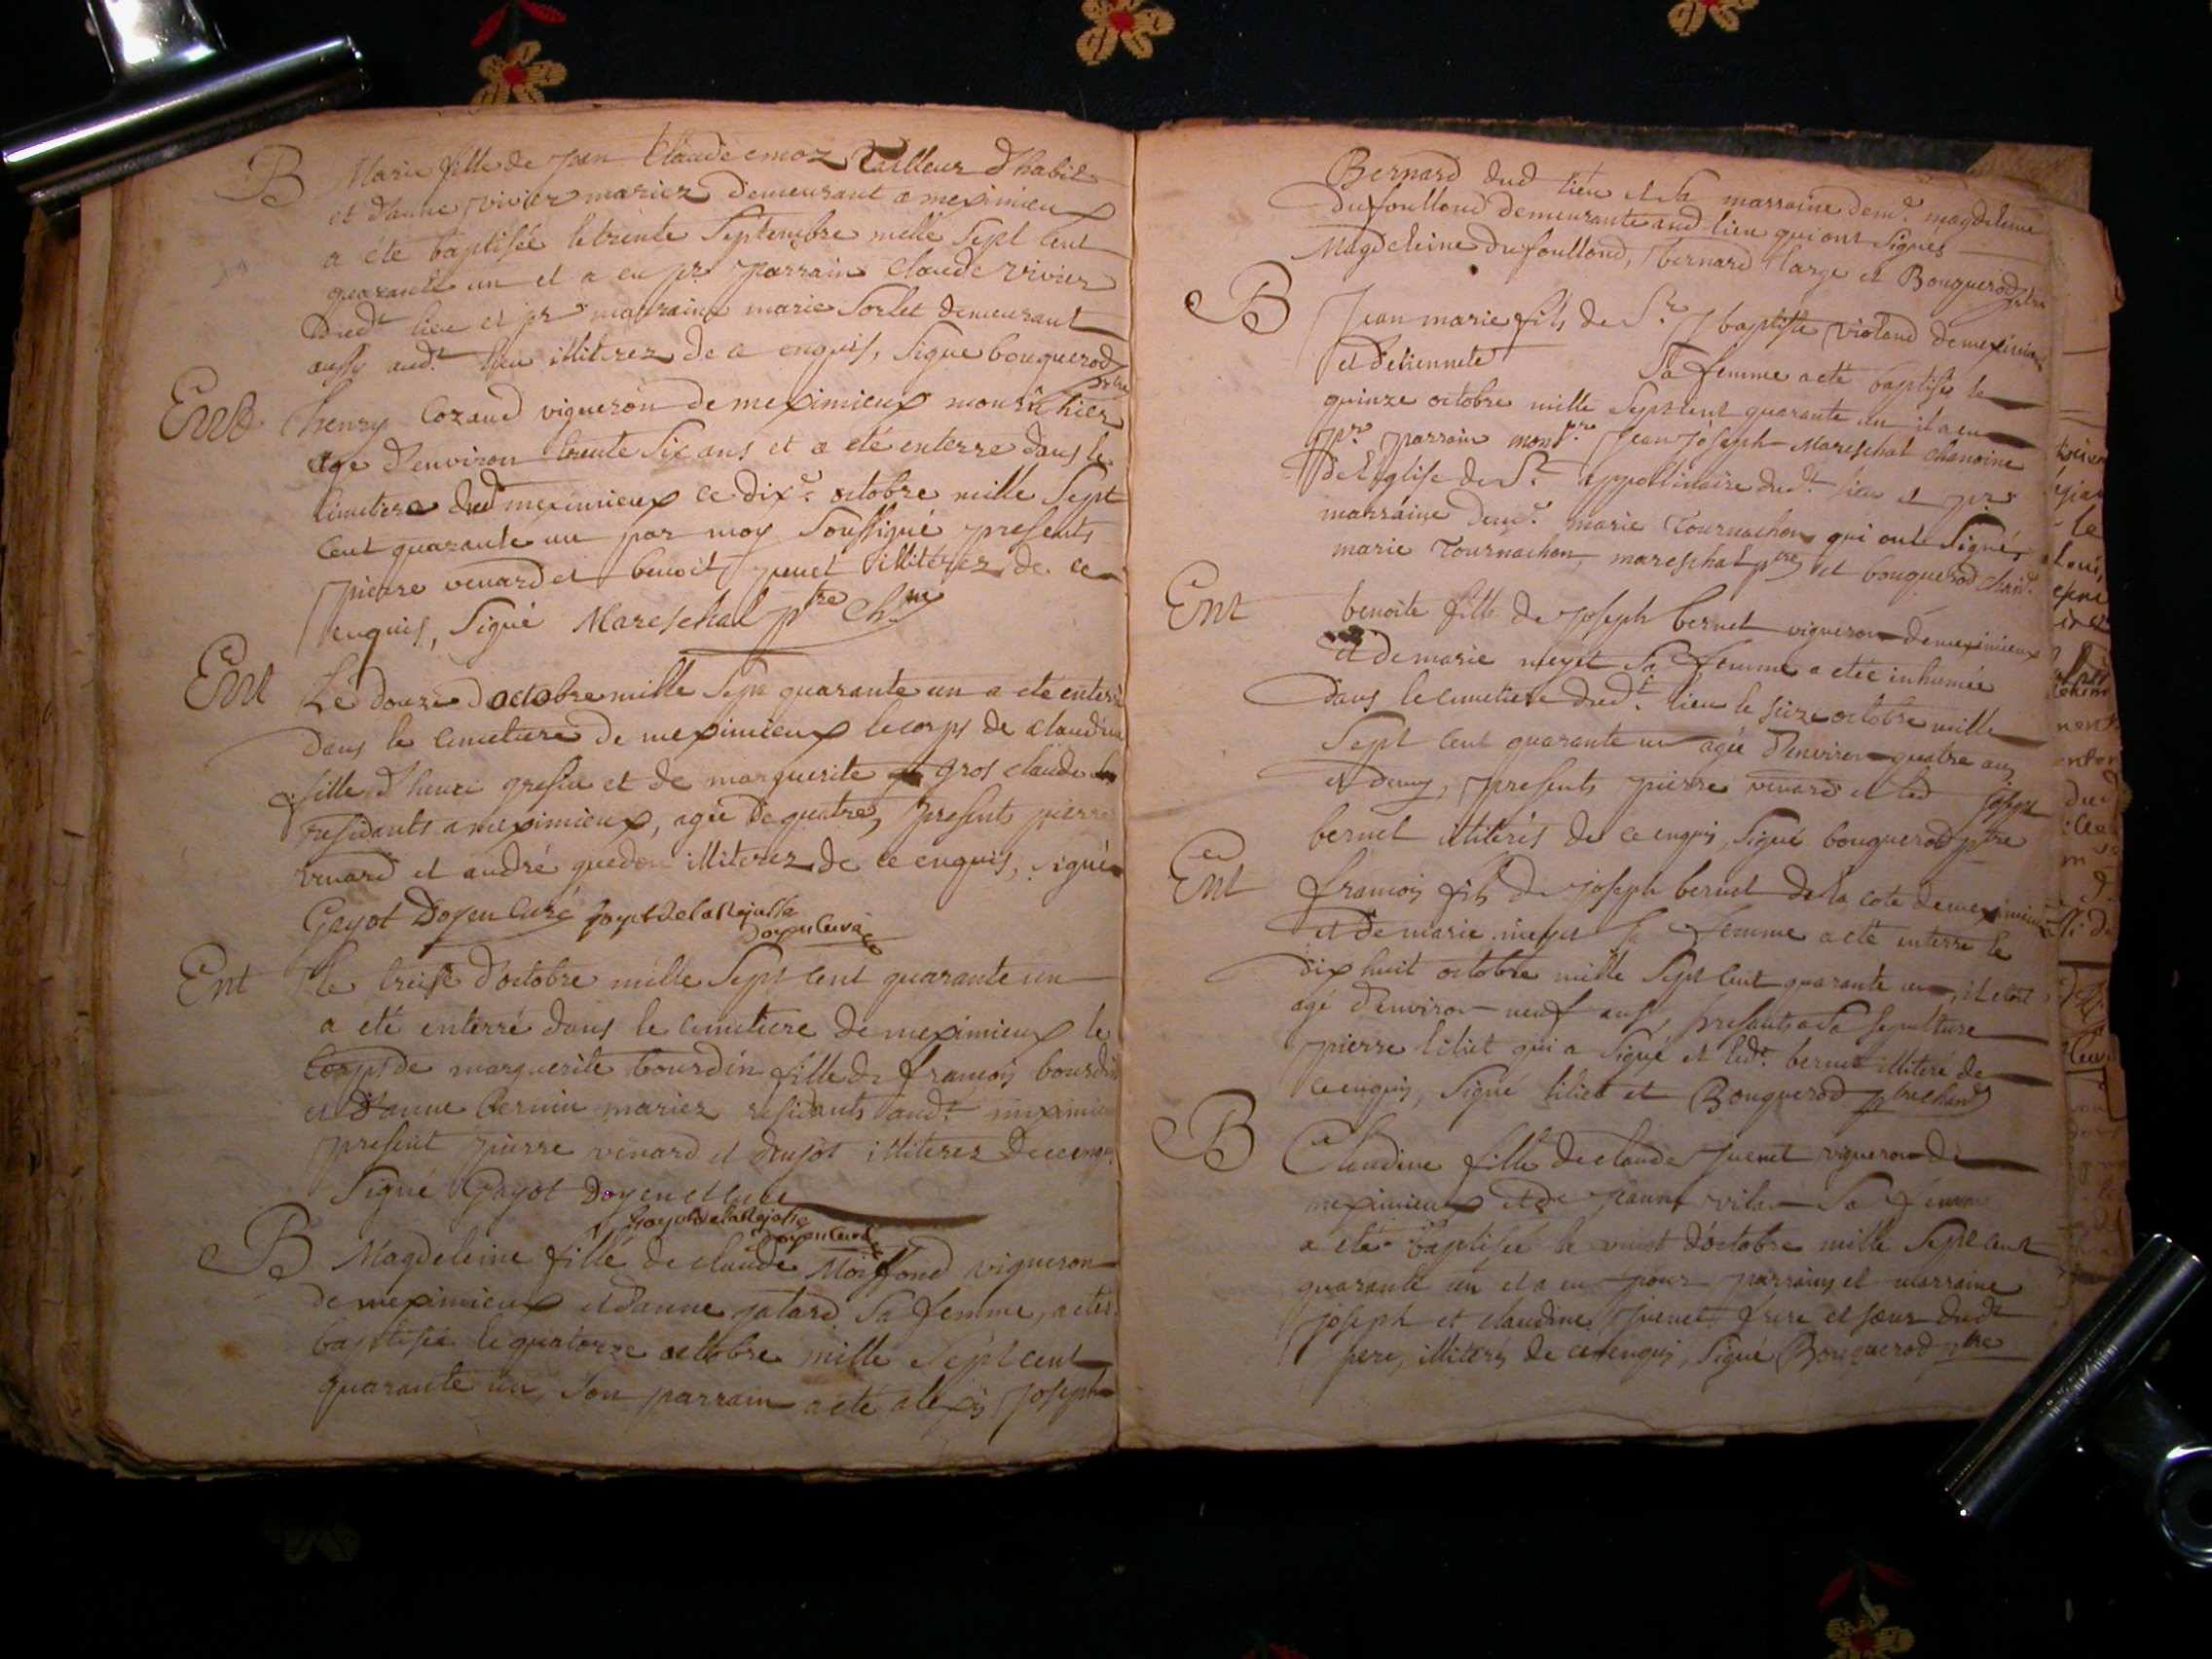 B Marie fille de Jean Claude emoz Tailleur d'habit
et d'anne vivier mariez demeurant a meximieux
a été baptisée le trente Septembre mille Sept Cent
quarante un et a eu pr parrain Claude vivier
dudt lieu et pr marraine marie Sorlet demeurant
aussy audt lieu illiterez de ce enquis, Signe bouquerod
prtre
Ent henry Cozand vigneron de meximieux mourut hier
age d'environ trente Six ans et a eté enterre dans le
cimetiere dud meximieux ce dixe octobre mille Sept
Cent quarante un par moy Soussigné presents
pierre venard et benoit juenet illiterez de ce
enquis, Signé Mareschal ptre Chne
Ent Le douze d'octobre mille Sept quarante un a eté enterré
dans le cimetiere de meximieux le corps de claudine
fille d'henri greslu et de marguerite gros claude
residants a meximieux, agée de quatre, present pierre
venard et andré guedon illiterez de ce enquis, signé
Gayot Doyen Curé gayot de la Rajasse
doyen curé
Ent Le treise d'octobre mille Sept Cent quarante un
a eté enterré dans le cimetiere de meximieux le
Corps de marguerite bourdin fille de françois bourdin
et d'anne bernin mariez residants audt meximieux
present pierre venard et illiterez de ce enquis
Signé Gayot Doyen et Curé
Gayot de la Rajasse
doyen curé
B Magdeleine fille de claude Moiffond vigneron
de meximieux et d'anne jatard Sa femme, a eté
baptisée le quatorze octobre mille Sept cent
quarante un, Son parrain a eté alexis Joseph
Bernard dud lieu et Sa marraine deme magdeleine
Dufoulloud demeurante aud lieu qui ont Signes
Magdeleine dufoulloud, bernard large et Bouquerod
prtre
B Jean marie fils de Sr J baptiste violand de meximieux
et d'etiennete Sa femme a eté baptisé le
quinze octobre mille Sept cent quarante un il a eu
pr parrain monsr Jean Joseph Mareschal chanoine
de l'eglise de St appollinaire dudt lieu et pr
marraine deme marie Tournachon qui ont Signé,
marie Tournachon, mareschal ptre et bouquerod
Ent benoite fille de Joseph bernet vigneron de meximieux
et de marie meyet Sa femme a eteé inhumée
dans le cimetiere dudt lieu le seize octobre mille
Sept Cent quarante un agée d'environ quatre ans
et demy, presents pierre venard et led joseph
bernet illiterés de ce enquis, Signé bouquerod ptre
Ent françois fils de joseph bernet de la cote de meximieux
et de marie meyet Sa femme a eté enterre le
dix huit octobre mille Sept Cent quarante un, il etoit
agé d'environ neuf ans, presents a Sa Sepulture
pierre liliet qui a Signé et ledt bernet illiteré de
ce enquis, Signé liliet et Bouquerod ptre
B Claudine fille de claude Juenet vigneron de
meximieux et de jeanne Sa femme
a eté baptisée le vint d'octobre mille Sept cent
quarante un et a eu pour parrains et marraine
joseph et claudine Juenet frere et sœur dudt
pere, illiterés de ce enquis, Signé Bouquerod ptre